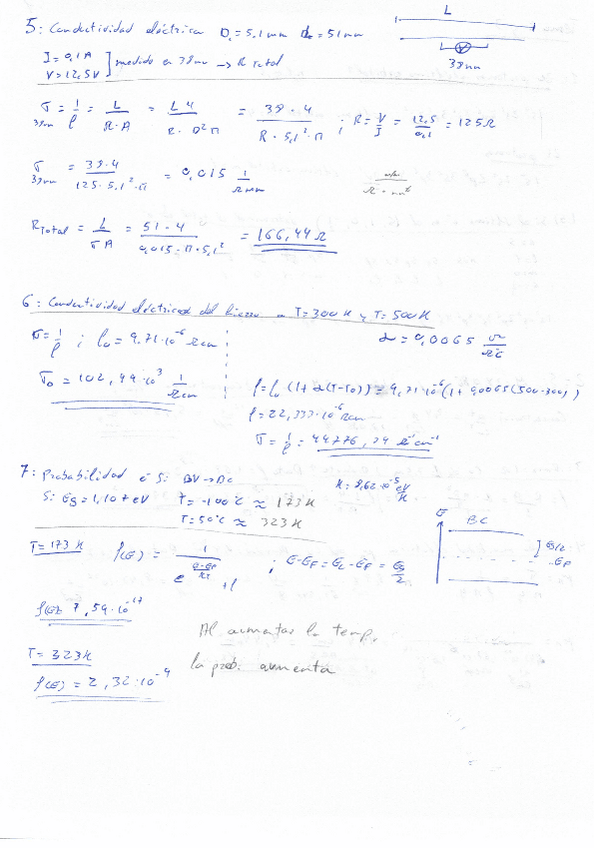 5: Conductividad eléctrica D = 5,1 mm L = 51 mm
L
I = 0,1 A
V = 12,5 V ] medido en 38 mm → R total
V
38 mm
σ 38mm = 1/ρ = L/(R·A) = (L·4)/(R·D²·π) = (38·4)/(R·5,1²·π) ; R = V/I = 12,5/0,1 = 125 Ω
σ 38mm = (38·4)/(125·5,1²·π) = 0,015 1/(Ω mm)
R Total = L/(σ A) = (51·4)/(0,015·π·5,1²) = 166,44 Ω
6: Conductividad eléctrica del hierro a T=300K y T=500K
σ = 1/ρ ; ρ₀ = 9,71·10⁻⁶ Ω cm
α = 0,0065
σ₀ = 102,99·10³ 1/(Ω cm)
ρ = ρ₀ (1 + α(T-T₀)) = 9,71·10⁻⁶ (1 + 0,0065(500-300))
ρ = 22,333·10⁻⁶ Ω cm
σ = 1/ρ = 44776,34 Ω⁻¹cm⁻¹
7: Probabilidad e⁻ Si BV → BC
K = 8,62·10⁻⁵ eV/K
Si Eg = 1,107 eV T = -100°C ≈ 173 K
T = 50°C ≈ 323 K
E BC
Eg/2
EF
T = 173 K f(E) = 1/(e^((E-EF)/KT) + 1) ; E-EF = EC-EF = Eg/2
f(E) = 7,59·10⁻¹⁷
Al aumentar la temp,
T = 323 K
la prob. aumenta
f(E) = 2,32·10⁻⁹